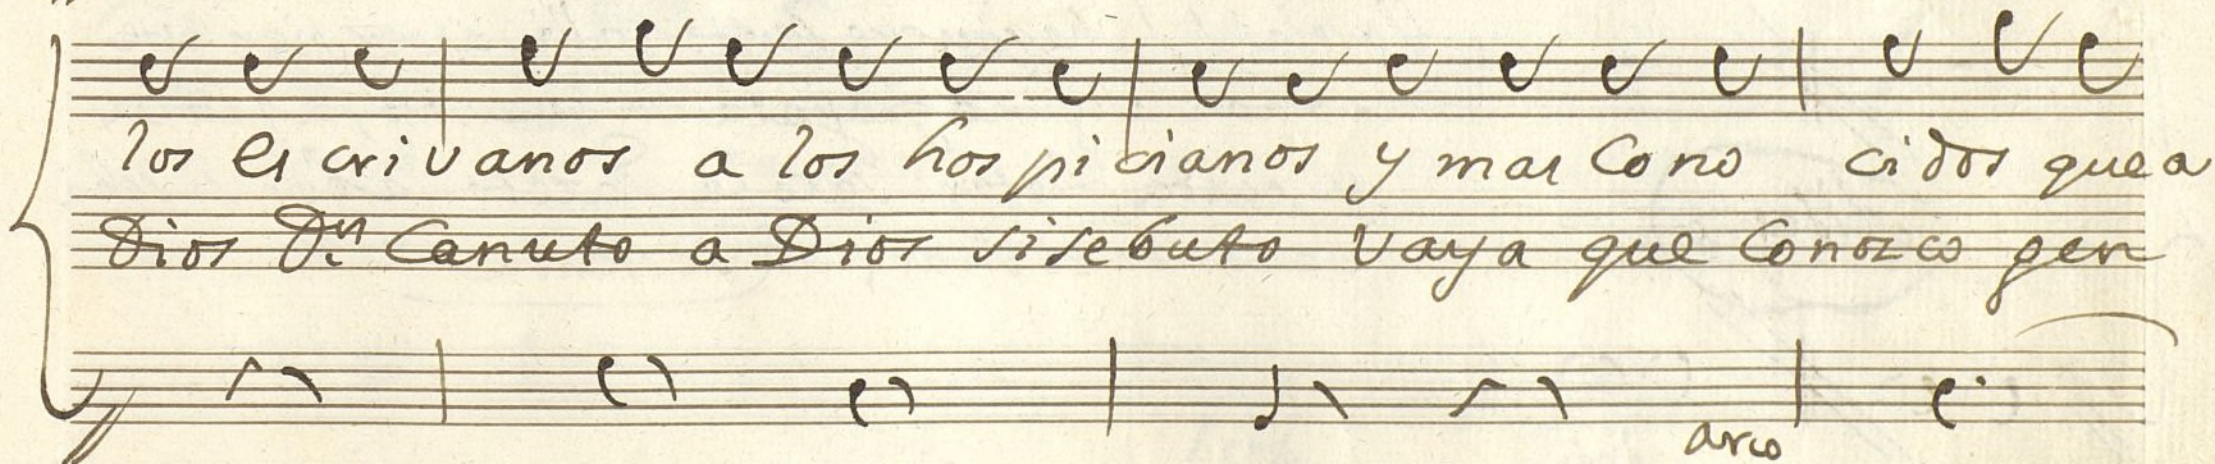 los es cri vanos a los hos pi cianos y mas Cono cidos que a
Dios Dn Canuto a Dios sisebuto vaya que Conozco gen
arco